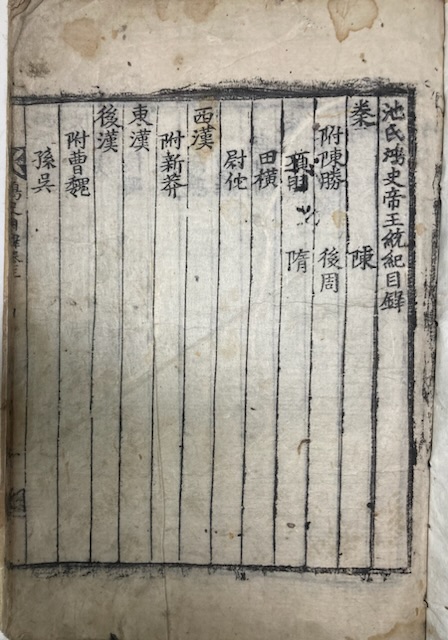 池氏鴻史帝王統紀目錄
秦 陳
附陳勝 後周
隋
田橫
尉佗
西漢
附新莽
東漢
後漢
附曹魏
孫吳